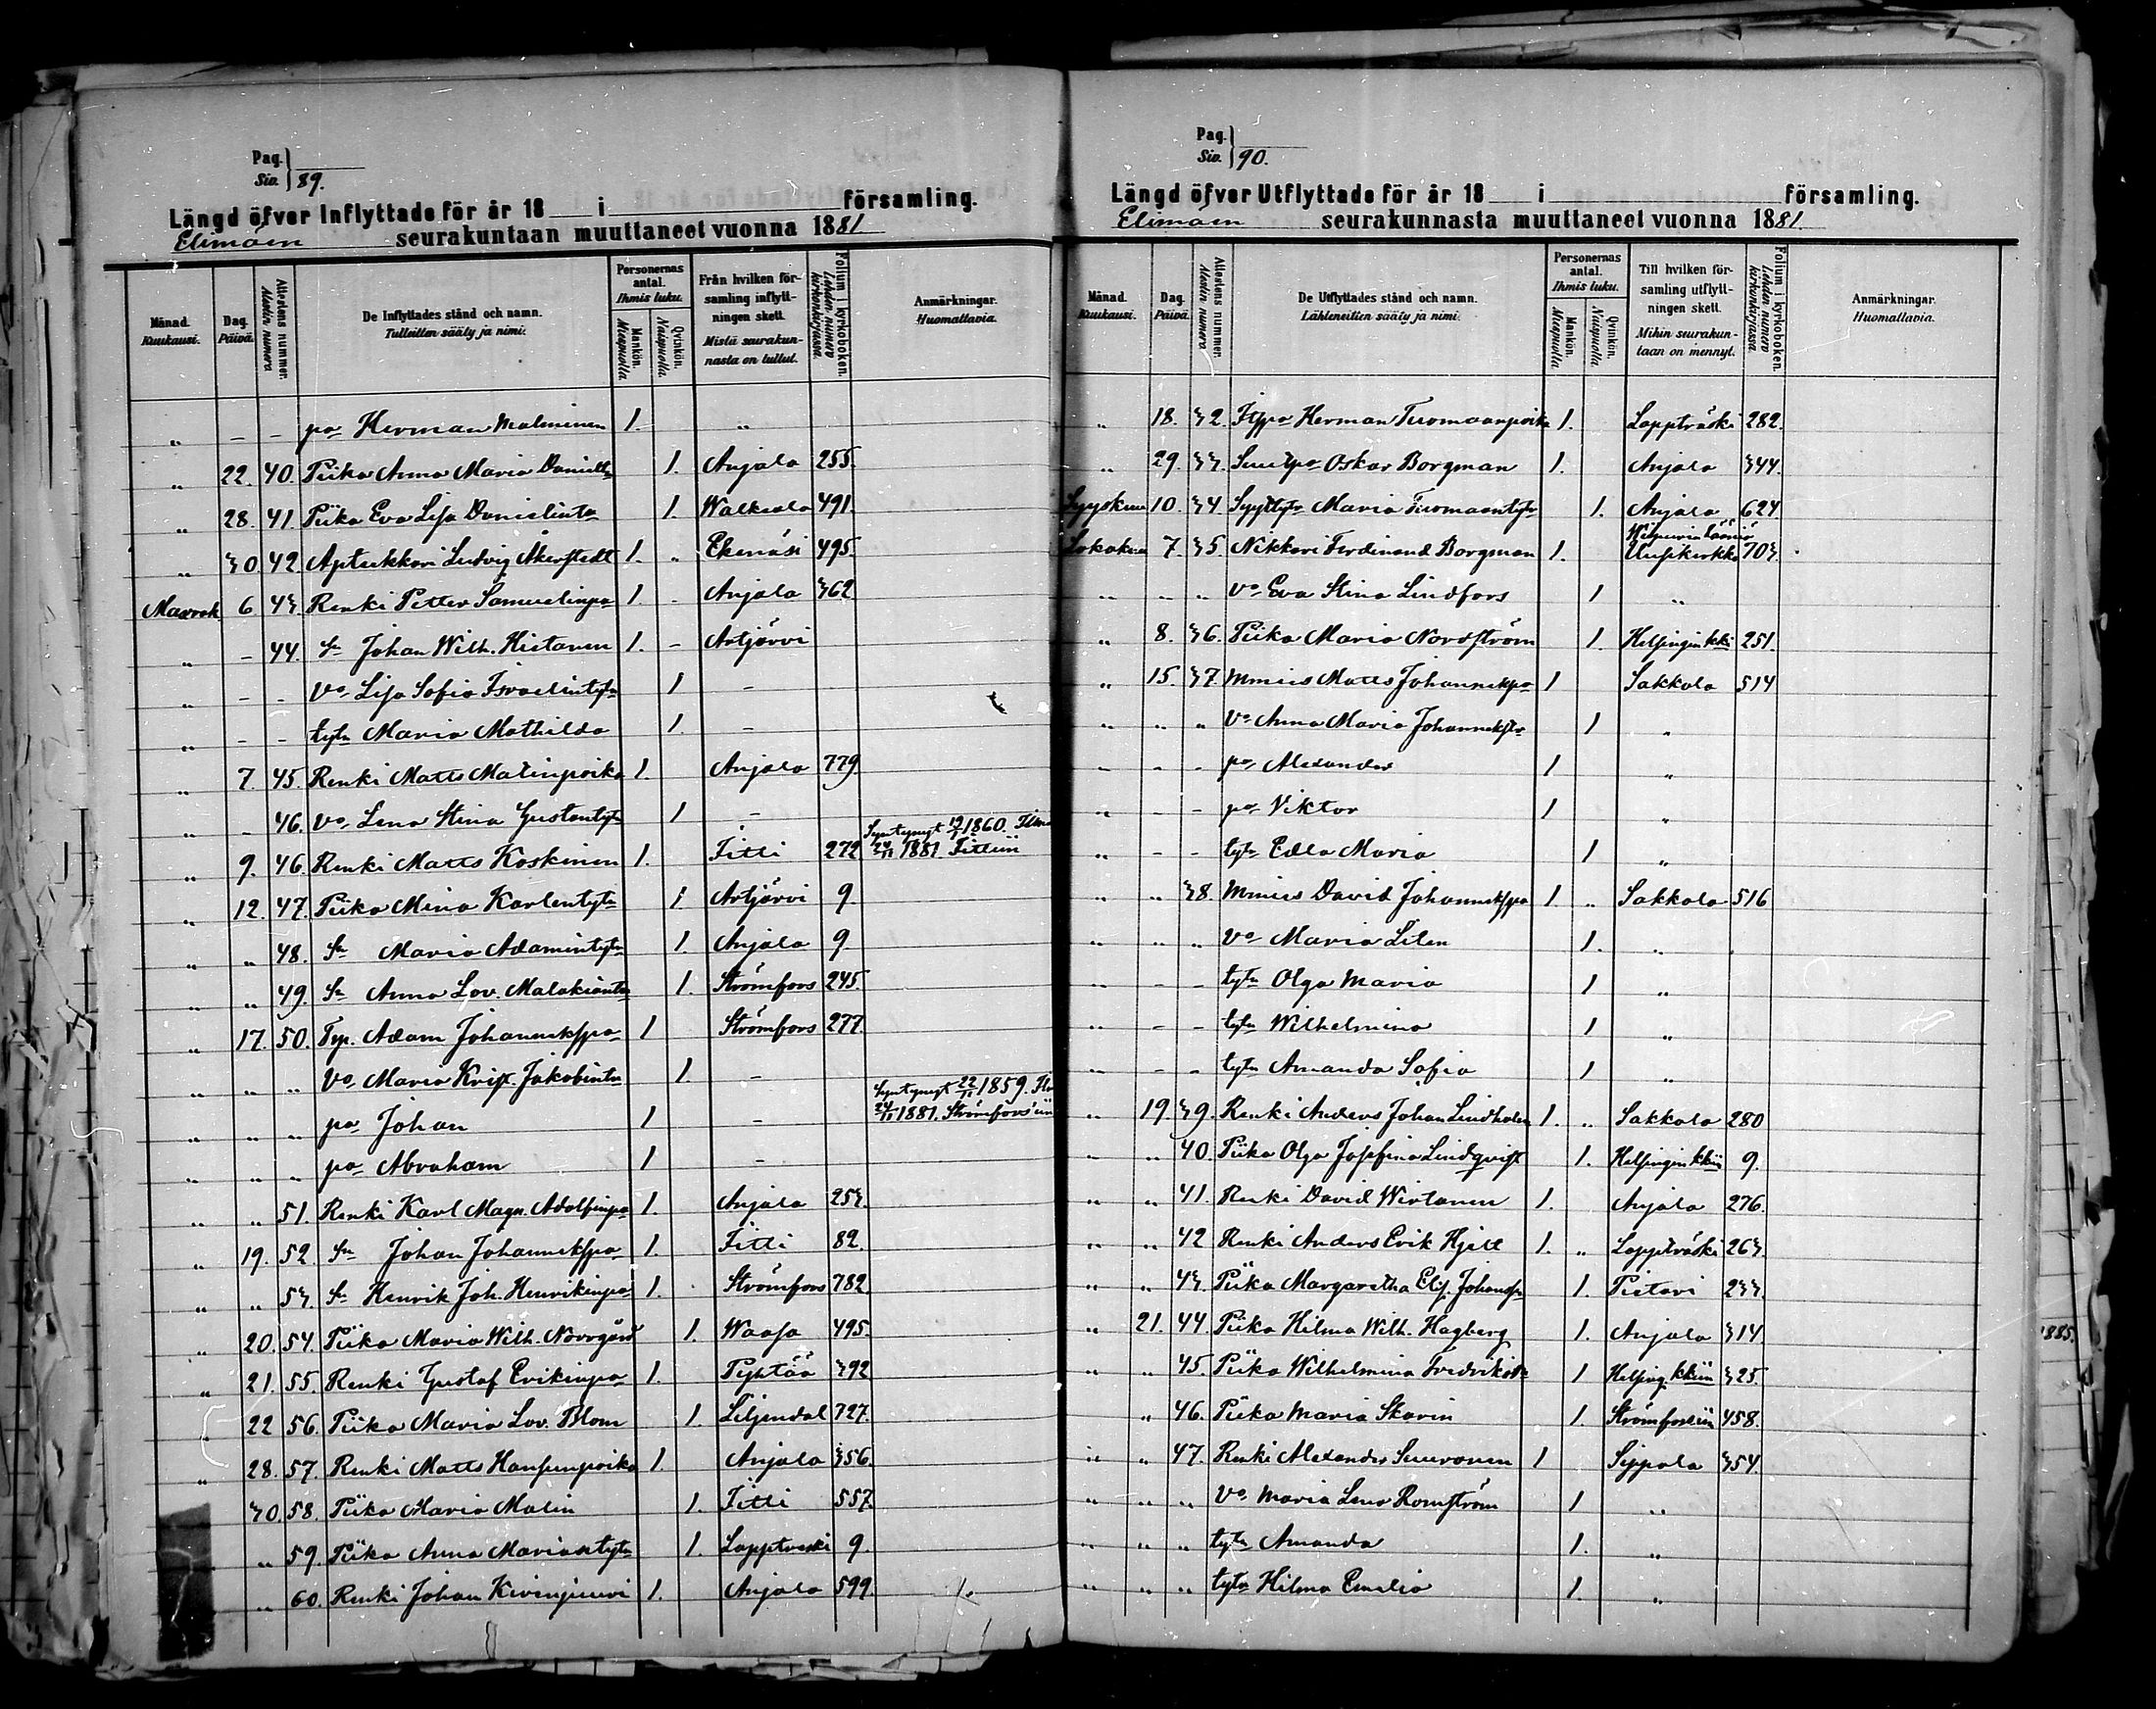 Pag. Siv. 89.
Längd öfver Inflyttade för år 18 i församling.
Elimäen seurakuntaan muuttaneet vuonna 1881
Månad. Kuukausi.
Dag. Päivä.
Attestens nummer. Nestin numero
De Inflyttades stånd och namn. Tulleitten sääty ja nimi.
Personernas antal. Ihmis luku.
Mankön. Miespuolia
Qvinkön. Naispuolia.
Från hvilken församling inflyttningen skett. Mistä seurakunnasta on tullut.
Folium i kyrkoboken. Lehden numero kirkonkirjassa.
Anmärkningar. Huomattavia.
" - - po Herman Malminen 1. "
" 22. 40. Piika Anna Maria Danielin 1. Anjala 255.
" 28. 41. Piika Eva Lisa Danielinto 1. Walkeala 491.
" 30. 42. Aptekkari Ludvig Åkerstedt 1. " Ekenäsi 495.
Marrask 6 43. Renki Petter Samuelinpo 1. - Anjala 362
" - 44. Sn Johan Wilh. Hietanen 1. - Artjärvi
" - - Vo Lisa Sofia Israelintytr 1 -
" - - tytr Maria Mathilda 1. -
" 7. 45. Renki Matts Matinpoika 1. Anjala 779.
" - 46. vo Lena Stina Gustantytr 1 -
" 9. 46. Renki Matts Koskinen 1. Iitti 272 Syntynyt 19/1 1860. 24/11 1881 Iittiin
" 12. 47. Piika Mina Karlentytr 1 Artjärvi 9.
" " 48. Sn Maria Adamintytr 1. Anjala 9.
" " 49. Sn Anna Lov. Malakiantr 1. Strömfors 245.
" 17. 50. Typ. Adam Johanneksspo 1 Strömfors 277.
" " " Vo Maria Krist. Jakobintr 1. -
" " " po Johan 1 - Syntynyt 22/11 1859. 24/11 1881. Strömforsiin
" " " po Abraham 1 -
" " 51. Renki Karl Magn. Adolfinpo 1. Anjala 253.
" 19. 52. Sn Johan Johanneksspo 1. Iitti 82.
" " 53. Sn Henrik Joh. Henrikinpo 1. Strömfors 782
" 20. 54. Piika Maria Wilh. Norrgård 1. Waasa 495.
" 21. 55. Renki Gustaf Erikinpo 1. Pyhtää 392
" 22 56. Piika Maria Lov. Blom 1. Liljendal 727.
" 28. 57. Renki Matts Hansenpoika 1. Anjala 356.
30. 58. Piika Maria Malin 1. Iitti 557.
" 59. Piika Anna Mariantytr 1. Lapptreski 9.
" 60. Renki Johan Kivinjuuri 1. Anjala 599.
Pag. Siv. 90.
Längd öfver Utflyttade för år 18 i församling.
Elimäen seurakunnasta muuttaneet vuonna 1881.
Månad. Kuukausi.
Dag. Päivä.
Attestens nummer. Nestin numero
De Utflyttades stånd och namn. Lähteneitten sääty ja nimi.
Personernas antal. Ihmis luku.
Mankön. Miespuolia
Qvinkön. Naispuolia
Till hvilken församling utflyttningen skett. Mihin seurakuntaan on mennyt.
Folium i kyrkoboken. Lehden numero kirkonkirjassa.
Anmärkningar. Huomattavia.
" 18. 32. Herman Tuomaanpoika 1. Lappträski 282.
" 29. 33. Oskar Borgman 1. Anjala 344.
Syyskuu 10. 34. Maria Tuomaantytr 1. Anjala 624
Lokakuu 7. 35. Nikkari Ferdinand Borgman 1. Wiipurin läänin Uusikirkko 703.
" - " vo Eva Stina Lindfors 1 "
" 8. 36. Piika Maria Nordström 1. Helsingin kki 251.
" 15. 37. Mmies Matts Johanneksspo 1 Sakkola 514
" " " vo Anna Maria Johannekstr 1 "
- - - po Alexander 1 "
" - - po Viktor 1 "
" - - tytr Edla Maria 1 "
" " 38. Mmies David Johanneksspo 1. " Sakkola 516
" " " vo Maria Liten 1. "
" - - tytr Olga Maria 1 "
" - - tytr Wilhelmina 1 "
" - - tytr Amanda Sofia 1 "
" 19. 39. Renki Anders Johan Lindholm 1. " Sakkola 280
" " 40. Piika Olga Josefina Lindqvist 1. Helsingin kkiin 9.
" " 41. Renki David Wirtanen 1. Anjala 276.
" " 42 Renki Anders Erik Hjelt 1. " Lappträski 263.
" " 43. Piika Margaretha Elis. Johanstr 1. Pietari 233.
" 21. 44 Piika Hilma Wilh. Hagberg 1. Anjala 314
" " 45. Piika Wilhelmina Fredrikintr 1 Helsing. kkiin 325.
" 46. Piika Maria Skarin 1. Strömforsiin 458.
" " 47. Renki Alexander Suuronen 1 Sippola 354.
" " " Vo Maria Lena Romström 1 "
" " " tytr Amanda 1. "
" " " tytr Hilma Emilia 1. "
1885.